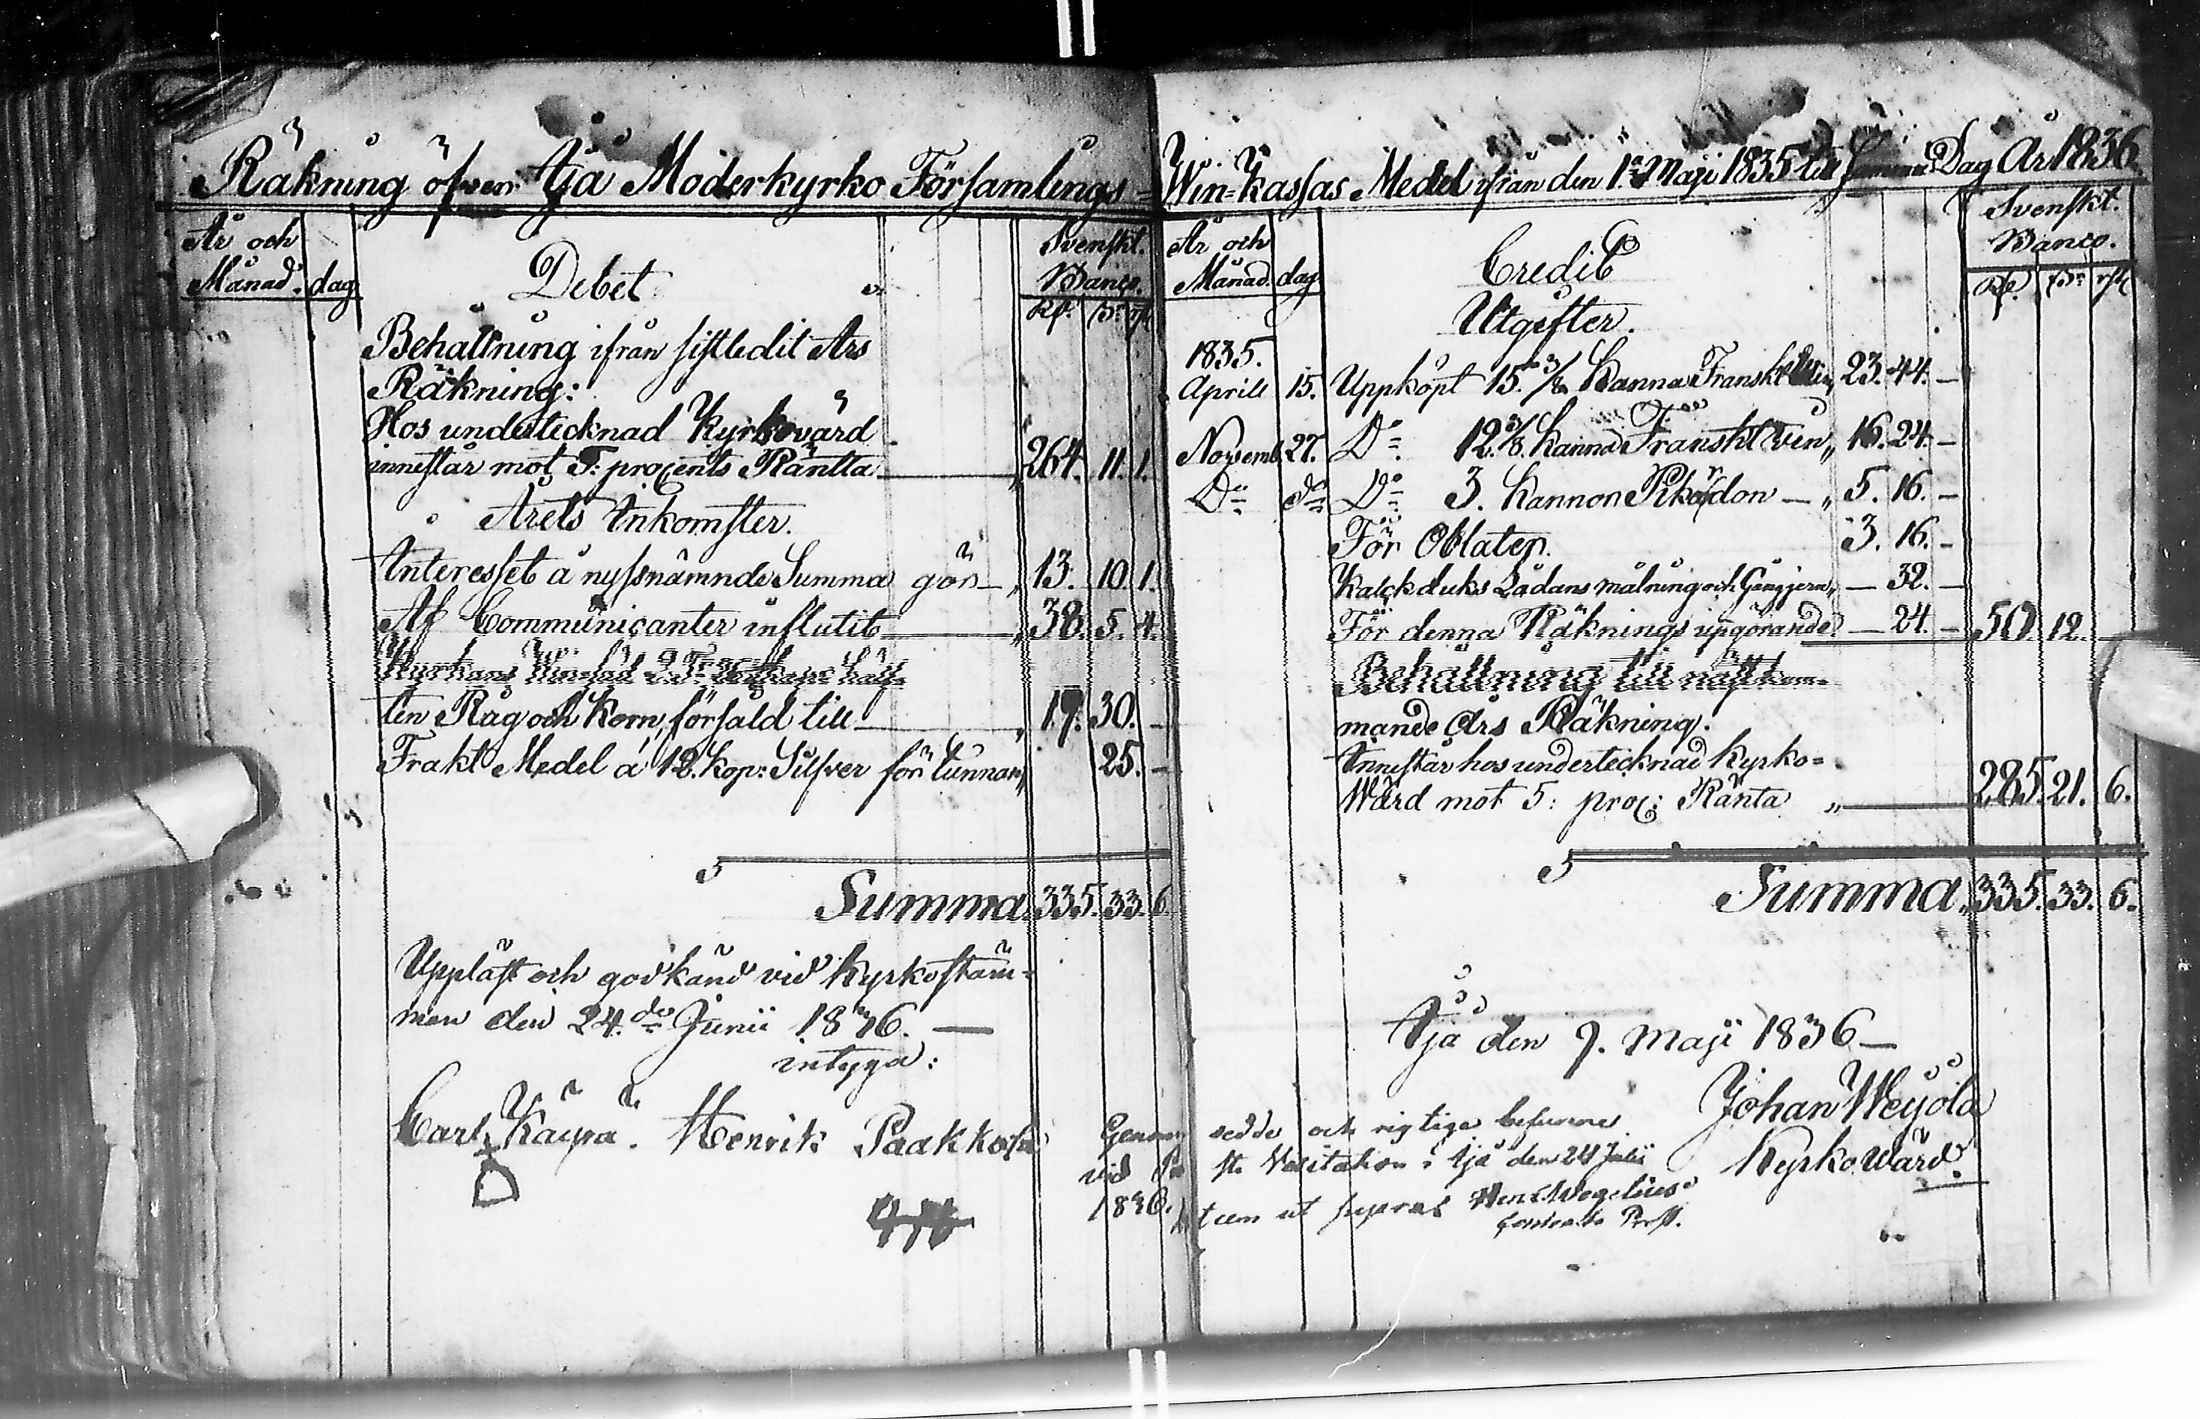 Räkning öfver Ijå Moderkyrko Församlings-
År och
Månad. dag
Debet
Svenskt.
Banco.
Rd. s. rst
Behållning ifrån sistledit Års
Räkning:
Hos undertecknad Kyrkovärd
innestår mot 5: procents Räntta „ 264. 11. 1.
Årets Inkomster.
Interesset å nyssnämnde Summa gör „ 13. 10. 1.
Af Communicanter influtit „ 38. 5. 4.
Kyrkans
ten Råg och Korn, försåld till „ 19. 30. –
Frakt Medel á 12. kop: Silfver för tunnan „ 25. –
Summa 335. 33. 6.
Uppläst och godkänd vid Kyrkostäm-
man den 24.de Junii 1836. —
intyga:
Carl Käyrä. Henrik Paakkola
Win-Kassas Medel ifrån den 1a Maji 1835 till samma Dag År 1836.
År och
Månad. dag
Credit
Svenskt.
Banco.
Rd. s. rst
Utgifter.
1835.
Aprill 15. Uppköpt 15. 3/8 Kanna Franskt Win „ 23. 44. –
Novemb. 27. Do 12. 3/8. Kanna Franskt vin „ 16. 24. –
Do do Do 3. Kannor Pikardon — „ 5. 16. –
För Oblater. 3. 16. –
Kalckduks Lådans målning och Gångjern „ — 32. –
För denna Räknings upgörande — 24. – 50. 12. –
Behållning till nästkom-
mande Års Räkning.
Innestår hos undertecknad Kyrko-
Wärd mot 5: proc: Ränta „ 285. 21. 6.
Summa. 335. 33. 6.
Ijå den 9. Maji 1836 —
Johan Weyola
Kyrko Wärd.
Genomsedde och rigtige befunne
vid Visitation i Ijå den 24 Julii
1836. ut supra Wegelius
Prost.